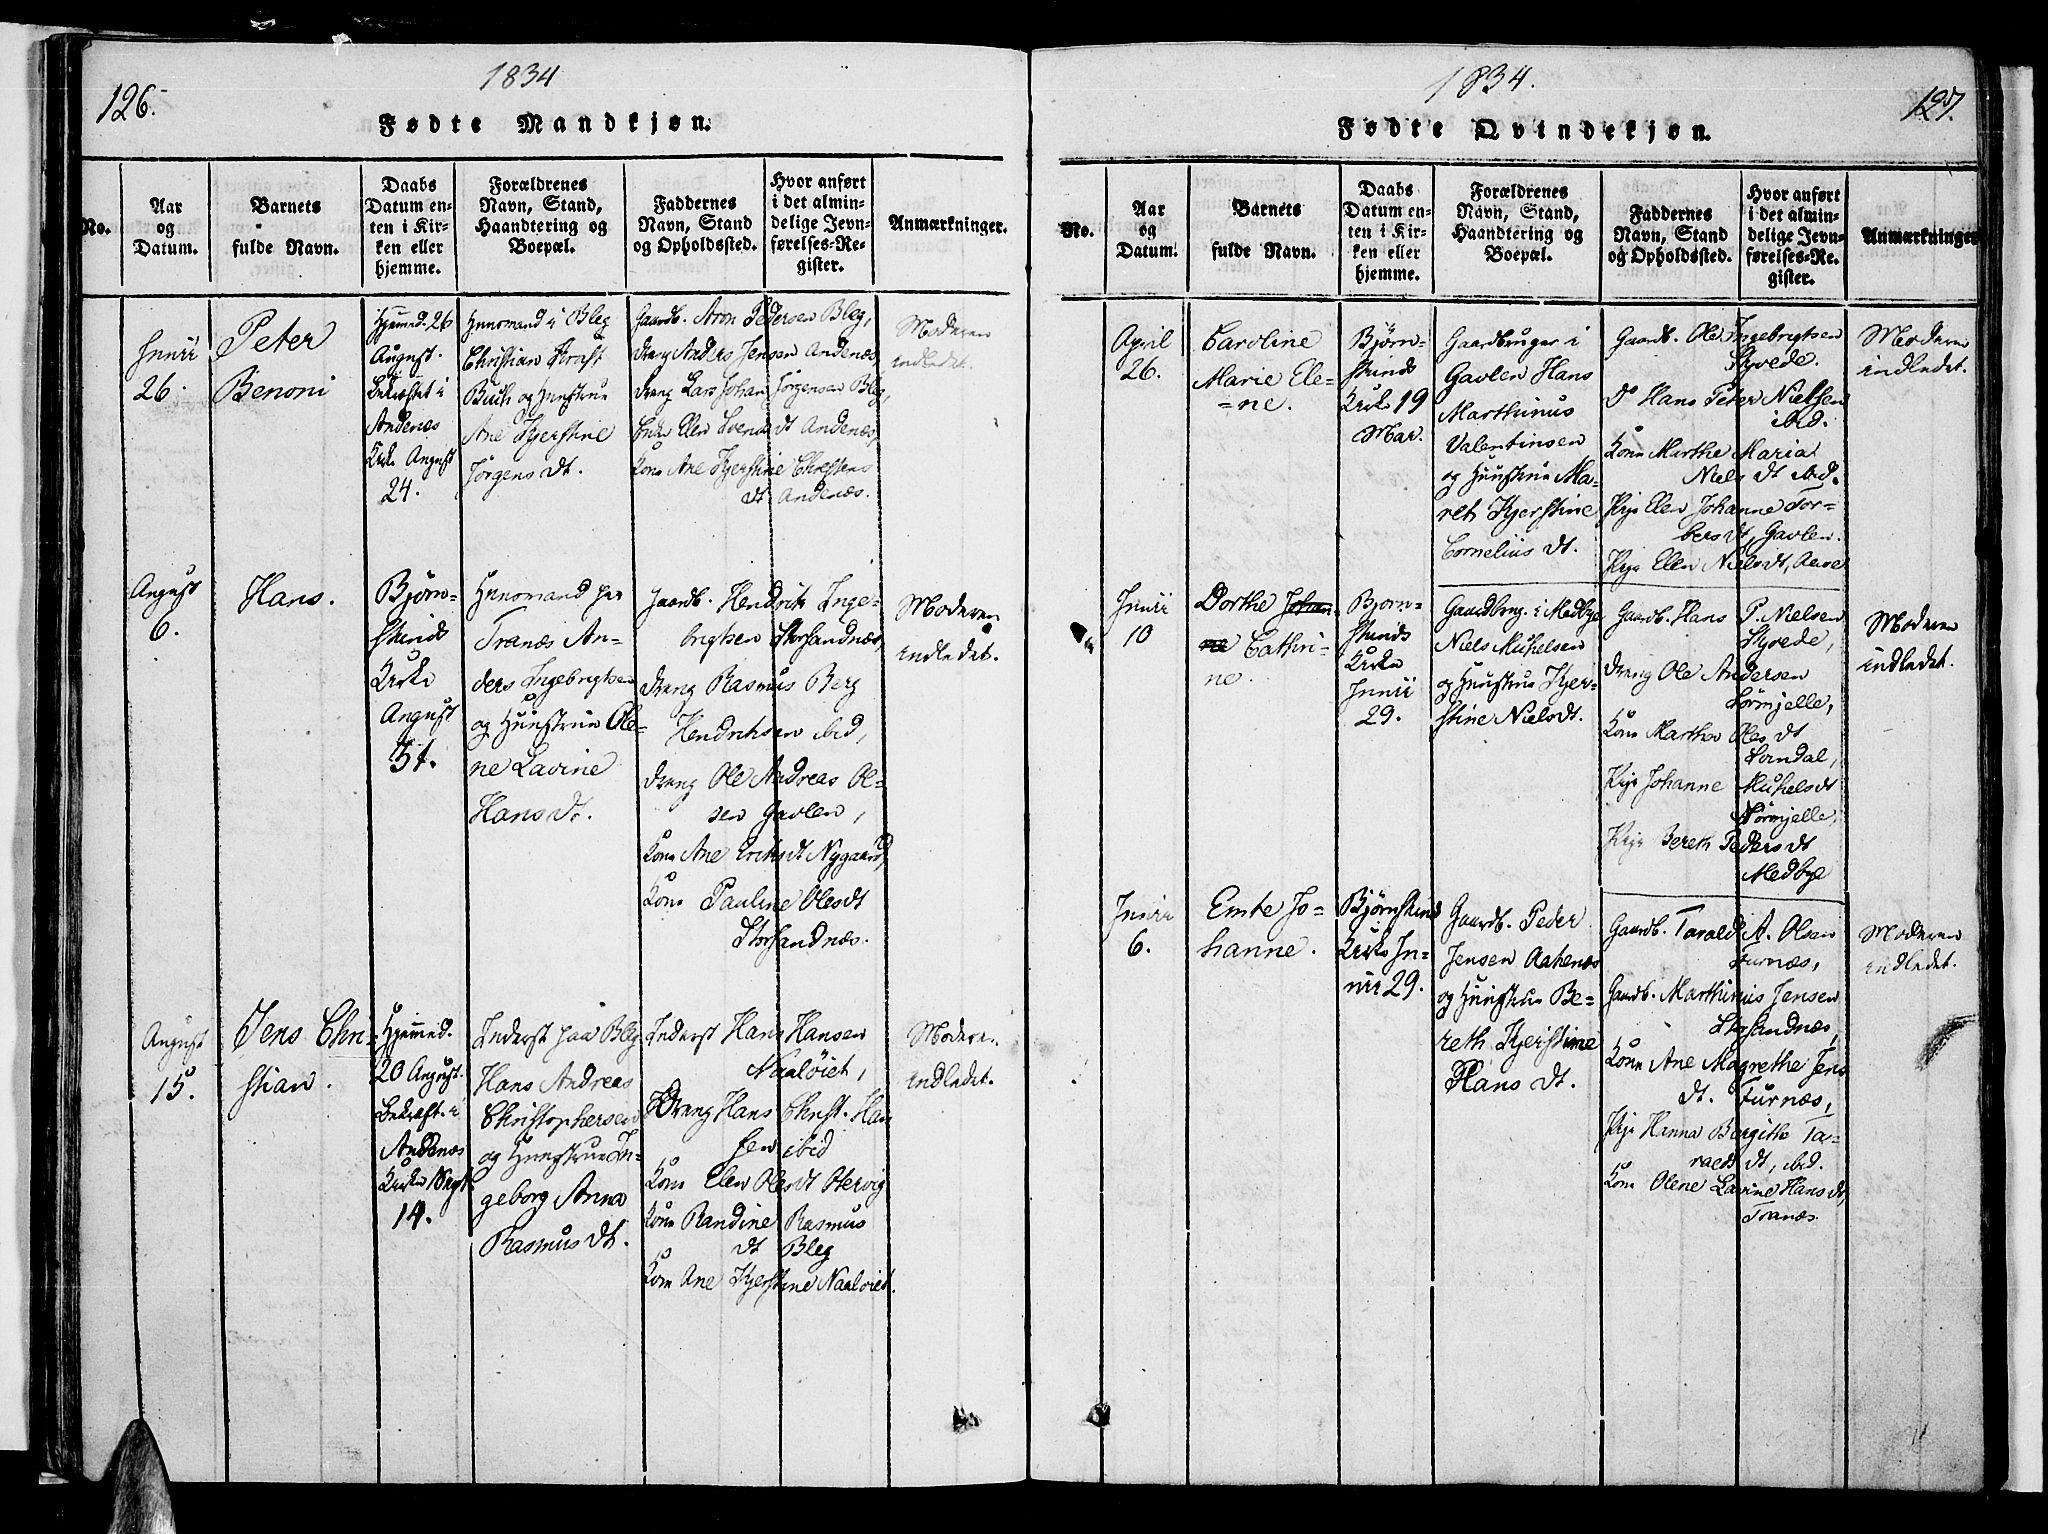 126.
1834
Fødte Mandkjøn.
No.
Aar
og
Datum.
Barnets
fulde Navn.
Daabs
Datum en-
ten i Kir-
ken eller
hjemme.
Forældrenes
Navn, Stand,
Haandtering og
Boepæl.
Faddernes
Navn, Stand
og Opholdssted.
Hvor anført
i det almin-
delige Jevn-
førelses-Re-
gister.
Anmærkninger.
Junii
26.
Peter
Benoni
Hjemmed. 26
August.
Bekræftet i
Andenæs
Kirke August
24.
Huusmand i Bleg
Christian
Buch og Huustrue
Ane Kjerstine
Jörgens dt.
Gaardb. Aron Pedersen Bleg,
Dreng Anders Jensen Andenæs,
Dreng Lars Johan Jörgensen Bleg,
Enke Ellen Svends dt Andenæs,
Kone Ane Kjerstine Christens
dt Andenæs.
Moderen
indledet.
August
6.
Hans.
Björn-
skinds
Kirke
August
31.
Huusmand paa
Tranæs An-
ders Ingebrigtsen
og Huustrue Ole-
ne Lavine
Hans dt.
Gaardb. Hendrik Inge-
brigtsen Storsandnæs,
Dreng Rasmus Berg
Hendriksen ibid,
Dreng Ole Andreas Ol-
sen Gavlen,
Kone Ane Eriksdt Nygaard,
Kone Pauline Olesdt
Storsandnæs.
Moderen
indledet.
August
15.
Jens Chri-
stian.
Hjemmed.
20 August.
Bekræft. i
Andenæs
Kirke Sept
14.
Inderst paa Bleg
Hans Andreas
Christophersen
og Huustrue In-
geborg Anna
Rasmus dt.
Inderst Hans Hansen
Naaløiet,
Dreng Hans Christ. Han
sen ibid
Kone Elen Olesdt
Kone Randine Rasmus
dt Bleg
Kone Ane Kjerstine Naaløiet.
Moderen
indledet.
1834.
127.
Fødte Qvindekjøn.
No.
Aar
og
Datum.
Barnets
fulde Navn.
Daabs
Datum en-
ten i Kir-
ken eller
hjemme.
Forældrenes
Navn, Stand,
Haandtering og
Boepæl.
Faddernes
Navn, Stand
og Opholdssted.
Hvor anført
i det almin-
delige Jevn-
førelses-Re-
gister.
Anmærkninger
April
26.
Caroline
Marie Ele-
=ne.
Björn-
skinds
Kirke 19
Mar.
Gaardbruger i
Gavlen Hans
Marthinus
Valentinsen
og Huustrue Ma-
reth Kjerstine
Cornelius dt.
Gaardb. Ole Ingebrigtsen
Skyvede.
Do Hans Peter Nielsen
ibid.
Kone Marthe Maria
Niels dt ibid.
Pige Elen Johanne Tor-
bersdt, Gavlen.
Pige Ellen Nielsdt,
Moderen
indledet.
Junii
10
Dorthe Johan-
ne Cathri-
ne.
Björn-
skinds
Kirke
Junii
29.
Gaardbrug. i Medbye
Niels Mikelsen
og Huustrue Kjer-
stine Nielsdt.
Gaardb. Hans P. Nielsen
Skyvede,
Dreng Ole Andersen
Sörmjelle,
Kone Marthe Oles dt
Dorndal,
Pige Johanne Mikelsdt
Sörmjelle,
Pige Bereth Peders dt
Medbye
Moderen
indledet.
Junii
6.
Emte Jo-
hanne.
Björnskinds
Kirke Ju-
nii 29.
Gaardb. Peder
Jensen Aakenæs
og Huustrue Be-
reth Kjerstine
Hans dt.
Gaardb. Tarald A. Olsen
Turnæs,
Gaardb. Marthinus Jensen
Storsandnæs,
Kone Ane Magrethe Jens
dt. Turnæs,
Pige Hanna Bergithe Ta-
ralds dt, ibid.
Kone Olene Lavine Hans dt,
Tranæs.
Moderen
indledet.